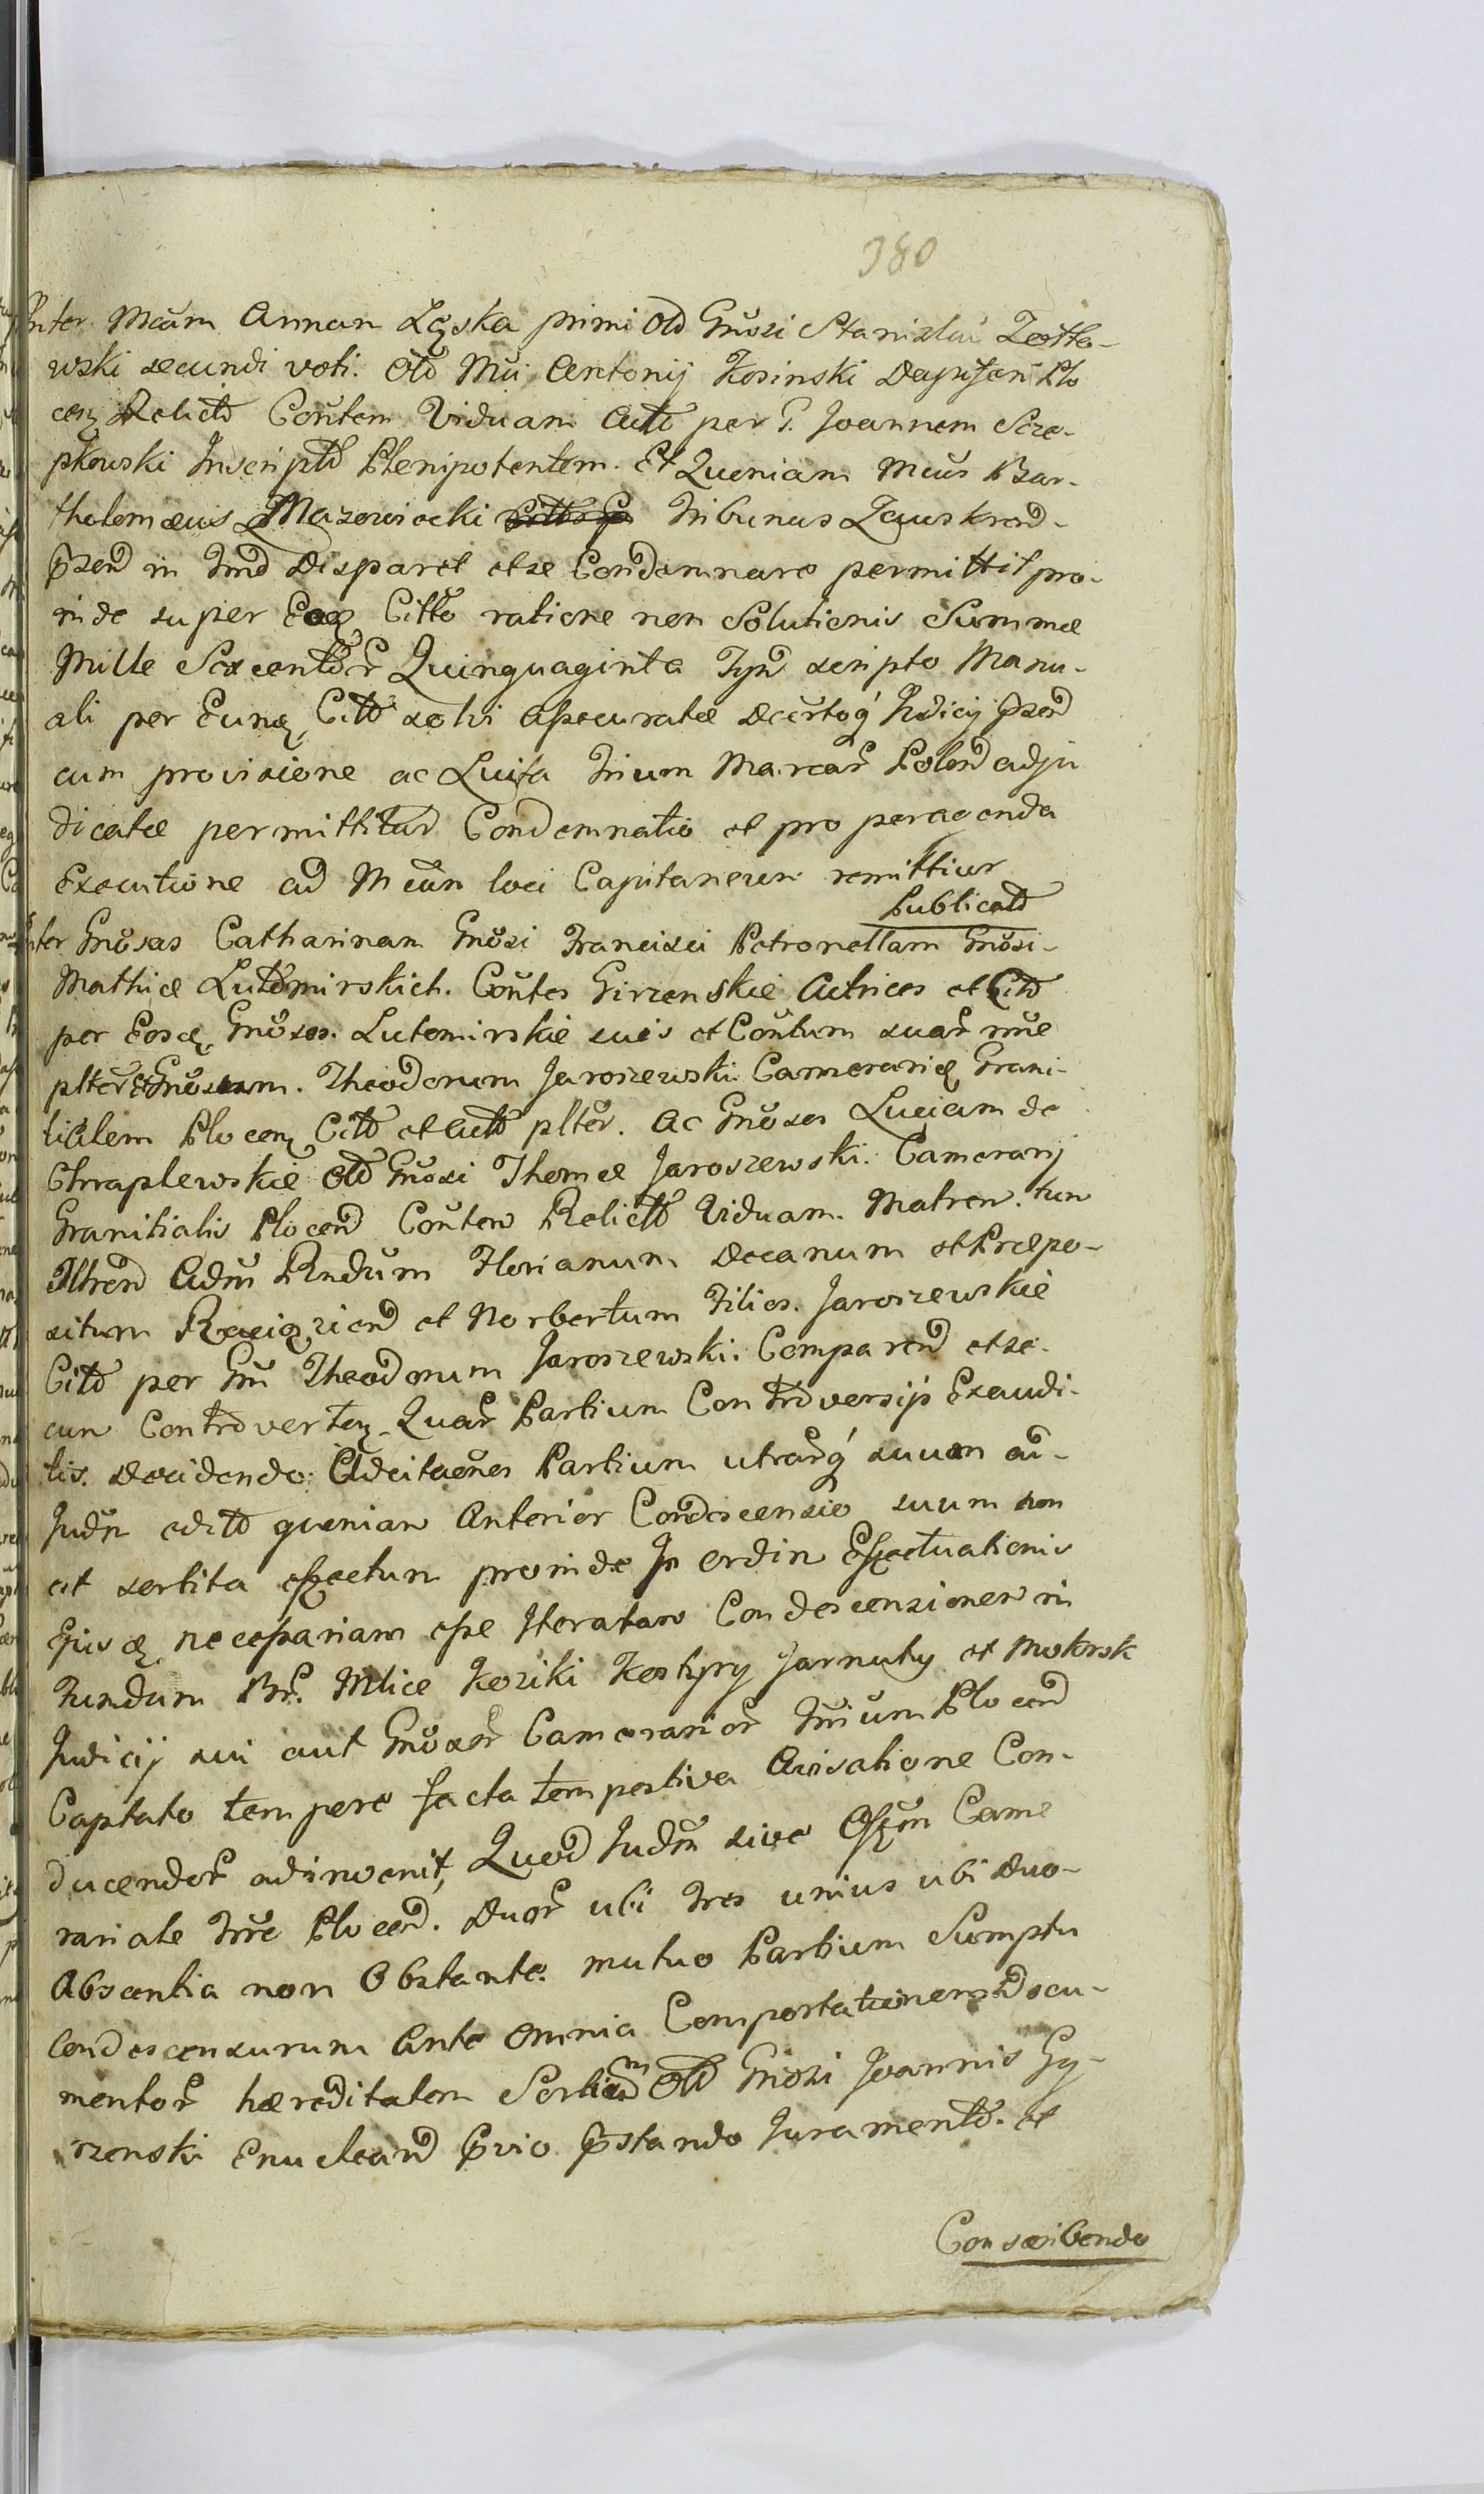 380
Inter Mcam Annam Łęska primi Old Gnosi Stanislai Zott-
wski secundi voti. Old Mci Antonij Kosinski Dapiferi Plo
cen Relictã Contem Viduam Actt per G. Joannem Szcze-
pkowski Inscriptũ Plenipotentem. Et Quoniam Mcus Bar-
tholomæus Mazowiecki Tribunus Zauskrzen-
przen in Tmno Disparet et se Condemnare permittit pro-
inde super Eoq Citto ratione non Solutionis Summæ
Mille Sexcentor Quinquaginta Tyn scripto Manu-
ali per Eunq Citt solvi assecuratæ Decretoq Judicij przen
cum provisione ac Luita Trium Marcar Polon adju
dicatæ permittitur Condemnatio et pro peragenda
Executione ad Mcum loci Capitaneum remittitur
Publicatt
Inter Gnosas Catharinam Gnosi Francisci Petronellam Gnosi-
Mathiæ Lutomirskich. Contes Girzenskie Actrices et Citt
per Eosq Gnosos. Lutomirskie suis et Contum suar nnie
plter et Gnosum. Theodorum Jaroszewski Camerariq Grani-
tialem Plocen Citt et Actt plter. Ac Gnosos Luciam de
Chraplewskie Old Gnosi Thomæ Jaroszewski. Camerarij
Granitialis Plocen Contem Relictt Viduam. Matrem. tum
Illren Adm Rndum Florianum Decanum et Præpo-
situm Raciąz̨ien et Norbertum Filios. Jaroszewskie
Citt per Gm Theodorum Jaroszewski. Comparen et se-
cum Controverten. Quar Partium Controversijs Exaudi-
tis. Decidendo. Adcitaones Partium utrarq suum ad-
Judm aditt quoniam Anterior Condescensio suum non
est sortita effectum proinde In ordin Effectuationis
Ejusq necessariam esse Iteratam Condescensionem in
Fundum Br. Mlice Koziki Kostyry Jarnuty et Mokrsk
Judicij sui aut Gnosor Camerarior Trrium Plocen
Captato tempore facta tempestiva Avisatione Con-
ducendor adinvenit, Quod Judm sive Offm Came
rariale Trrie Plocen. Duor ubi tres unius ubi Duo-
Absentia non Obstante. mutuo Partium Sumptu
Condescensurum Ante omnia Comportationem Docu-
mentor hæreditatem Sortium Old Gnosi Joannis Gy-
rzenski Enuclean prvio prstando Juramentt. et
Conscribendo